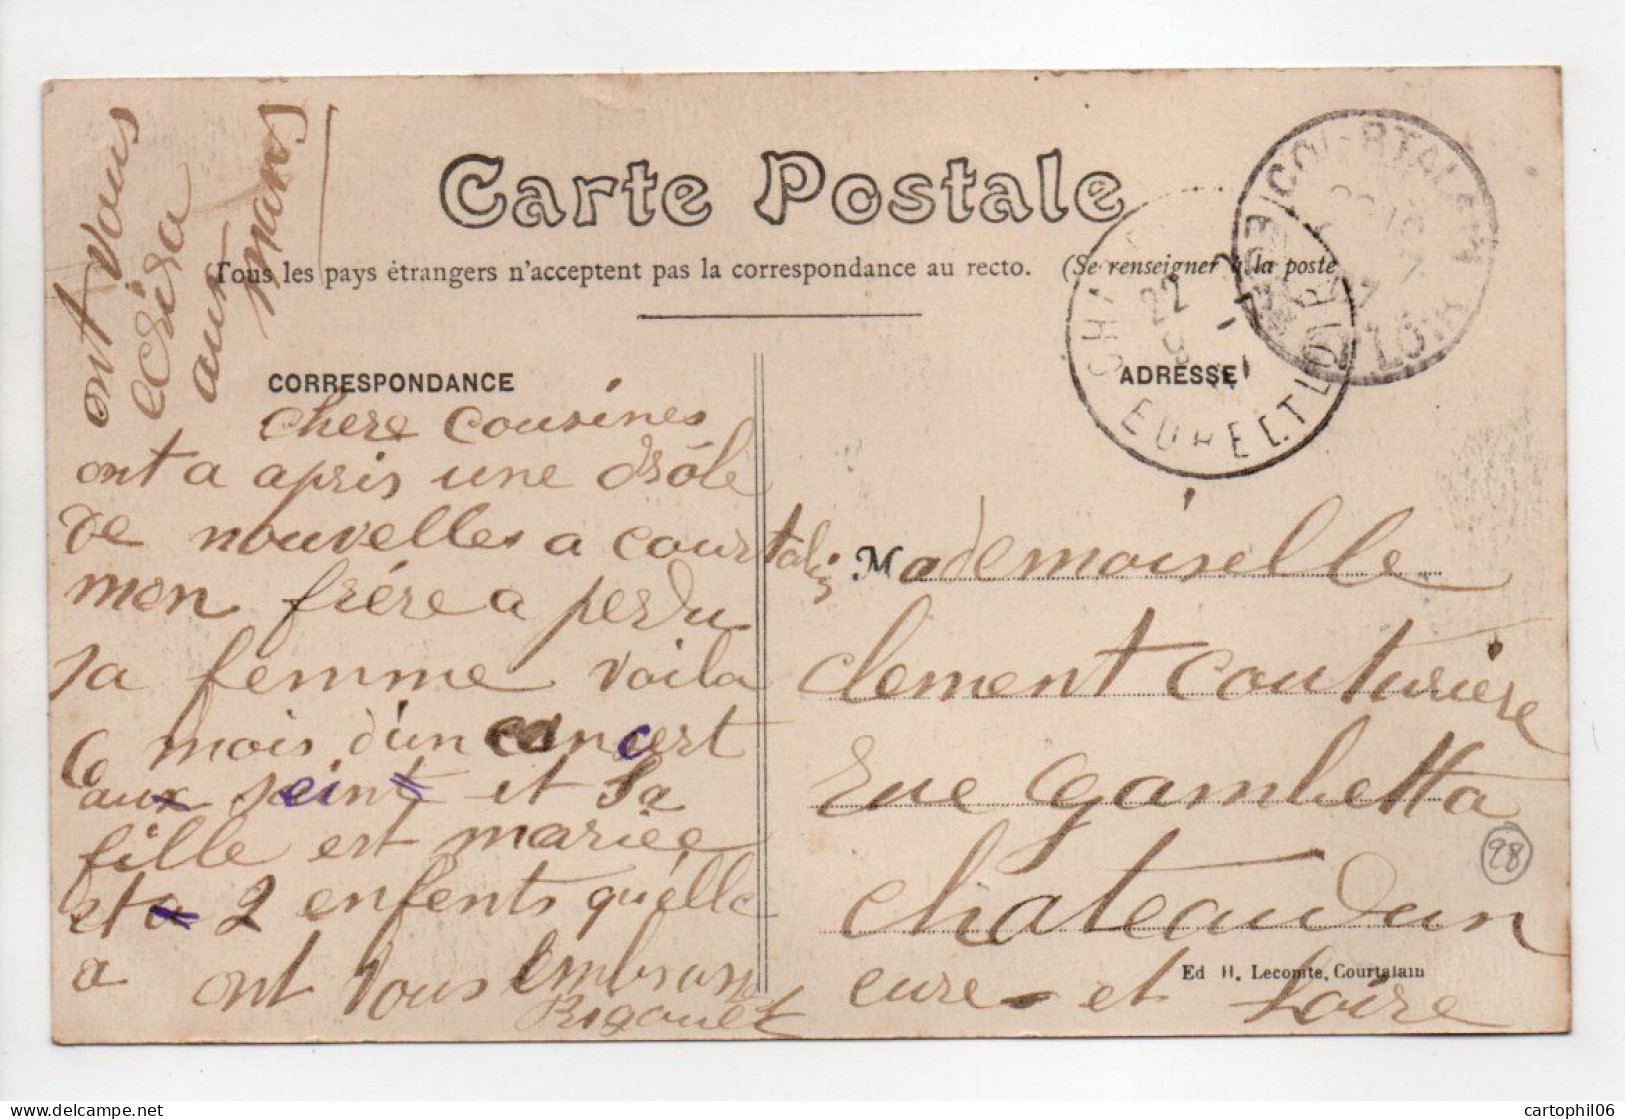 Carte Postale
Tous les pays étrangers n'acceptent pas la correspondance au recto. (Se renseigner à la poste
CORRESPONDANCE
ADRESSE
COURTALAIN
EURE ET LOIR
EURE ET LOIR
22
ont vous
ecrira
aux
mans
chere cousines
ont a apris une drôle
de nouvelles a courtalin
mon frére a perdu
sa femme voila
6 mois d'un cancert
aux seint et sa
fille est mariée
et a 2 enfents qu'elle
a ont vous embrass
Rigouet
Mademoiselle
clement couturiere
rue gambetta
chateaudun
eure et Loire
Ed H. Lecomte, Courtalain
98
cartophil06